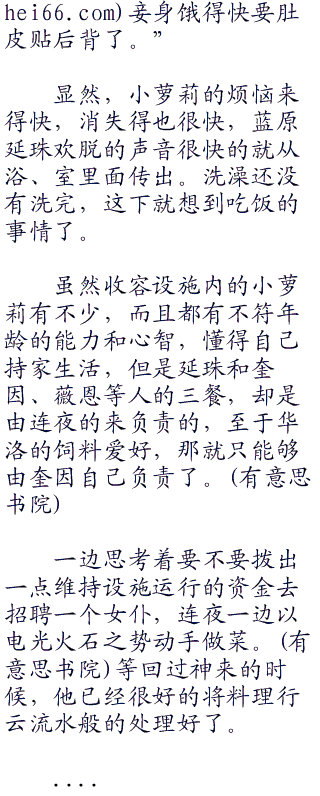 hei66.com)妾身饿得快要肚
皮贴后背了。”
显然，小萝莉的烦恼来
得快，消失得也很快，蓝原
延珠欢脱的声音很快的就从
浴、室里面传出。洗澡还没
有洗完，这下就想到吃饭的
事情了。
虽然收容设施内的小萝
莉有不少，而且都有不符年
龄的能力和心智，懂得自己
持家生活，但是延珠和奎
因、薇恩等人的三餐，却是
由连夜的来负责的，至于华
洛的饲料爱好，那就只能够
由奎因自己负责了。(有意思
书院)
一边思考着要不要拨出
一点维持设施运行的资金去
招聘一个女仆，连夜一边以
电光火石之势动手做菜。(有
意思书院)等回过神来的时
候，他已经很好的将料理行
云流水般的处理好了。
....